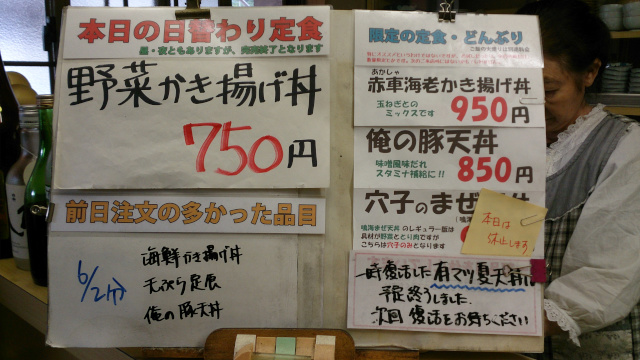 本日の日替わり定食
昼・夜ともありますが、完売終了となります
野菜かき揚げ丼
750円
前日注文の多かった品目
6/2分
海鮮かき揚げ丼
天ぷら定食
俺の豚天丼
限定の定食・どんぶり
あかしゃ
赤車海老かき揚げ丼
玉ねぎとの
ミックスです
950円
俺の豚天丼
味噌風味だれ
スタミナ補給に!!
850円
穴子のまぜ
鳴海まぜ天丼のレギュラー版は
具材が野菜ととり肉ですが
こちらは穴子のみとなります
本日は
休止します
一時復活した有マツ夏天丼は
予定終うしました
次回復活をお待ちください